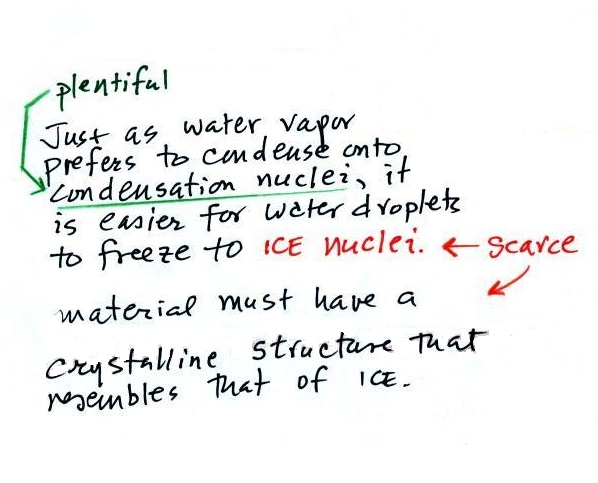 plentiful
Just as water vapor
prefers to condense onto
condensation nuclei, it
is easier for water droplets
to freeze to ICE nuclei. ← scarce
material must have a
crystalline structure that
resembles that of ICE.